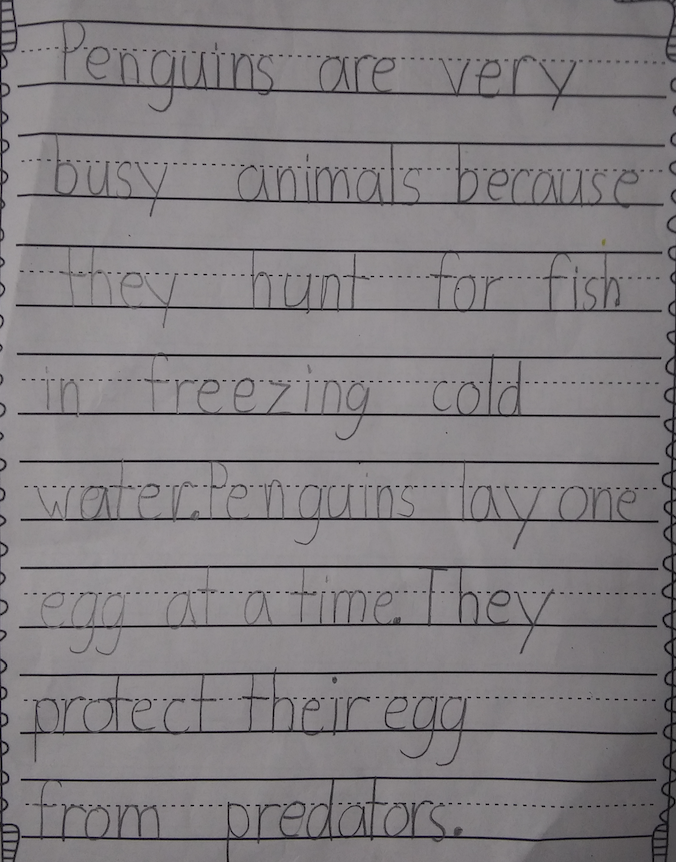 Penguins are very
busy animals because
they hunt for fish
in freezing cold
water.Penguins lay one
egg at a time.They
protect their egg
from predators.